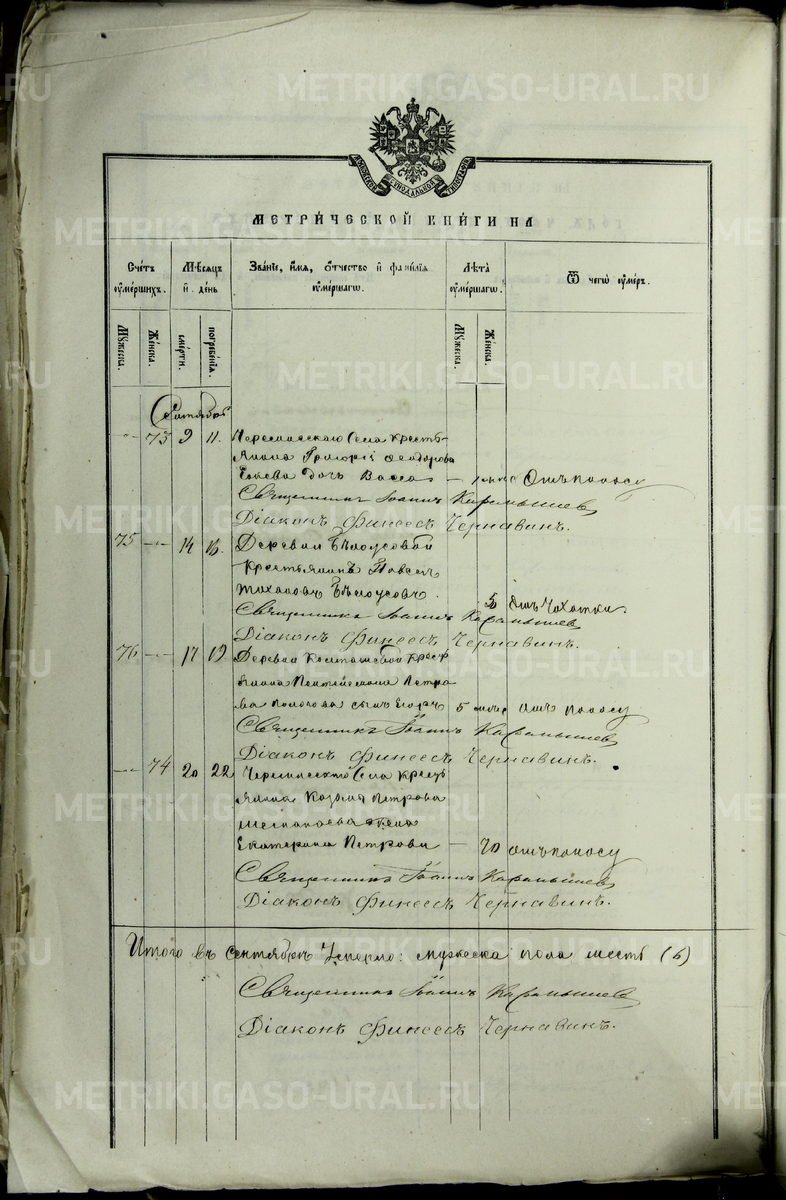 METRIKI.GASO-URAL.RU
МЕТРИ́ЧЕСКОЙ КНИ́ГИ НА
Сче́тъ ᲂу҆ме́ршихъ.
Мѣ́сяцъ и҆ де́нь
Зва́нїе, и҆́мя, ѻ҆́тчество и҆ фами́лїя ᲂу҆ме́ршагѡ.
Лѣ́та ᲂу҆ме́ршагѡ.
Ѿ чегѡ̀ ᲂу҆́меръ.
Мꙋ́жеска.
Же́нска.
сме́рти.
погребе́нїя.
Мꙋ́жеска.
Же́нска.
Сентябрь
73 9 11. Села Кресть-
янина Григорія Феодорова
дочь Васса Отъ поносу
Священникъ Іоаннъ Карамышев
Діаконъ Финеесъ Чернавинъ.
75 14 16. Деревни Бѣлоусовой
Крестьянинъ
Бѣлоусовъ.
5 Отъ Чахотки
Священникъ Іоаннъ Карамышев
Діаконъ Финеесъ Чернавинъ.
76 17 19 Деревни Крест
янина Петро
ва сынъ Егоръ 5 Отъ поносу
Священникъ Іоаннъ Карамышев
Діаконъ Финеесъ Чернавинъ.
74 20 22 Села Крест
янина Козьмы Петрова
жена
Екатерина Петрова — 70 отъ поносу
Священникъ Іоаннъ Карамышев
Діаконъ Финеесъ Чернавинъ.
Итого въ Сентябрѣ Умерло: мужеска пола шесть (6)
Священникъ Іоаннъ Карамышев
Діаконъ Финеесъ Чернавинъ.